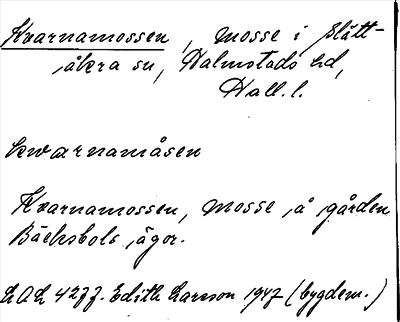 Kvarnamossen, mosse i Slätt-
åkra sn, Halmstads hd,
Hall. l.
kwarnamåsen
Kvarnamossen, mosse å gården
Bäckabols ägor.
LAL 4277. Edith Larsson 1947 (bygdem.)